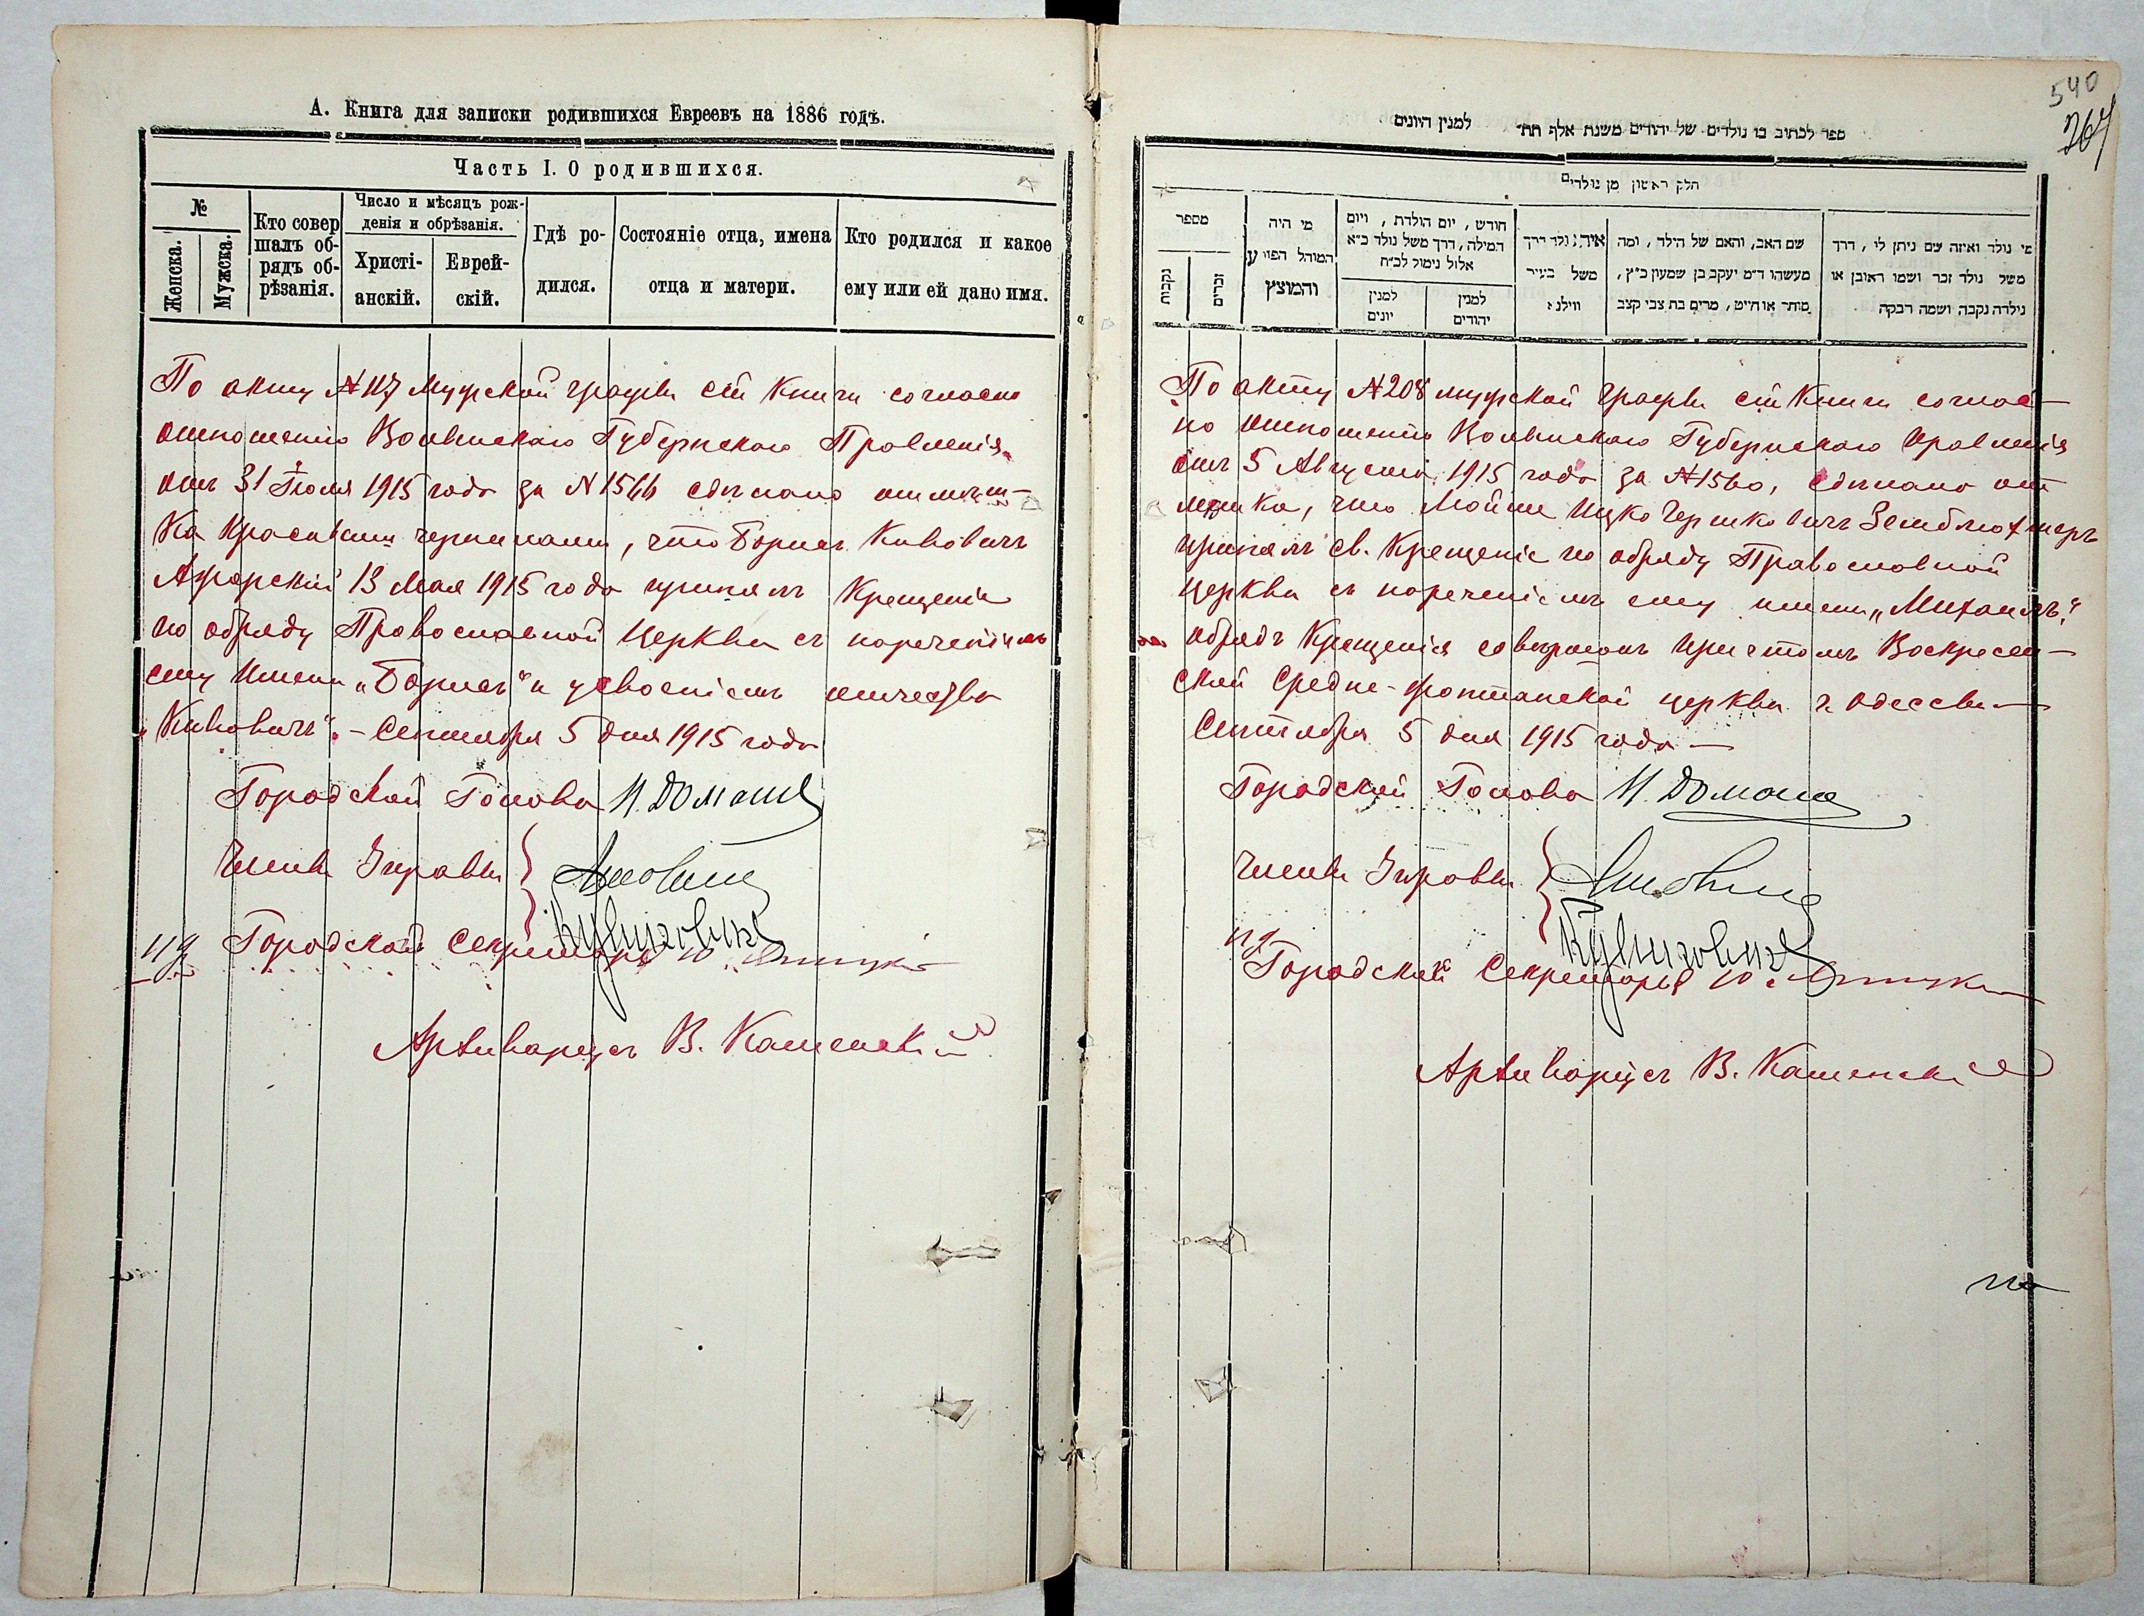 А. Книга для записки родившихся Евреевъ на 1886 годъ.
Часть I. О родившихся.
№
Женска.
Мужска.
Кто совер
шалъ об-
рядъ об-
рѣзанія.
Число и мѣсяцъ рож-
денія и обрѣзанія.
Христі-
анскій.
Еврей-
скій.
Гдѣ ро-
дился.
Состояніе отца, имена
отца и матери.
Кто родился и какое
ему или ей дано имя.
По акту №117 мужской графы сей книги согласно
отношенію Волынскаго Губернскаго Правленія
отъ 31 Іюля 1915 года за №1566 сдѣлана отмѣт-
ка красными чернилами, что Борисъ Кивовичъ
13 Мая 1915 года принялъ Крещеніе
по обряду Православной Церкви съ нареченіемъ
ему Имени „Борисъ" и усвоеніемъ отчества
„Кивовичъ". – Сентября 5 дня 1915 года
Городской Голова И. Домане
Члены Управы
ид Городской Секретарь Ю.
Архиваріусъ В. Каменскій
540
267
ספר לכתוב בו נולדים של יהודים משנת אלף תת״ למנין היונים
חלק ראשון מן נולדים
מספר
נקבות
זכרים
מי היה
המוהל
והמוצץ
חודש, יום הולדת, ויום
המילה, דרך משל נולד כ״א
אלול נימול לכ״ח
למנין
יונים
למנין
יהודים
איה נולד דרך
משל בעיר
ווילנא
שם האב, והאם של הילד, ומה
מעשהו ד״מ יעקב בן שמעון כ״ץ,
סוחר או חייט, מרים בת צבי קצב
מי נולד ואיזה שם ניתן לו, דרך
משל נולד זכר ושמו ראובן או
נילדה נקבה ושמה רבקה
По акту №208 мужской графы сей Книги соглас-
но отношенію Волынскаго Губернскаго Правленія
отъ 5 Августа 1915 года за №1560, сдѣлана от
мѣтка, что Мойше Ицко Гершковичъ
принялъ св. Крещеніе по обряду Православной
Церкви съ нареченіемъ ему имени „Михаилъ".
обрядъ Крещенія совершонъ причтомъ Воскресен-
ской Средне-фонтанской церкви г. Одессы —
Сентября 5 дня 1915 года —
Городской Голова И. Домане
Члены Управы
ид
Городской Секретарь Ю.
Архиваріусъ В. Каменскій
по